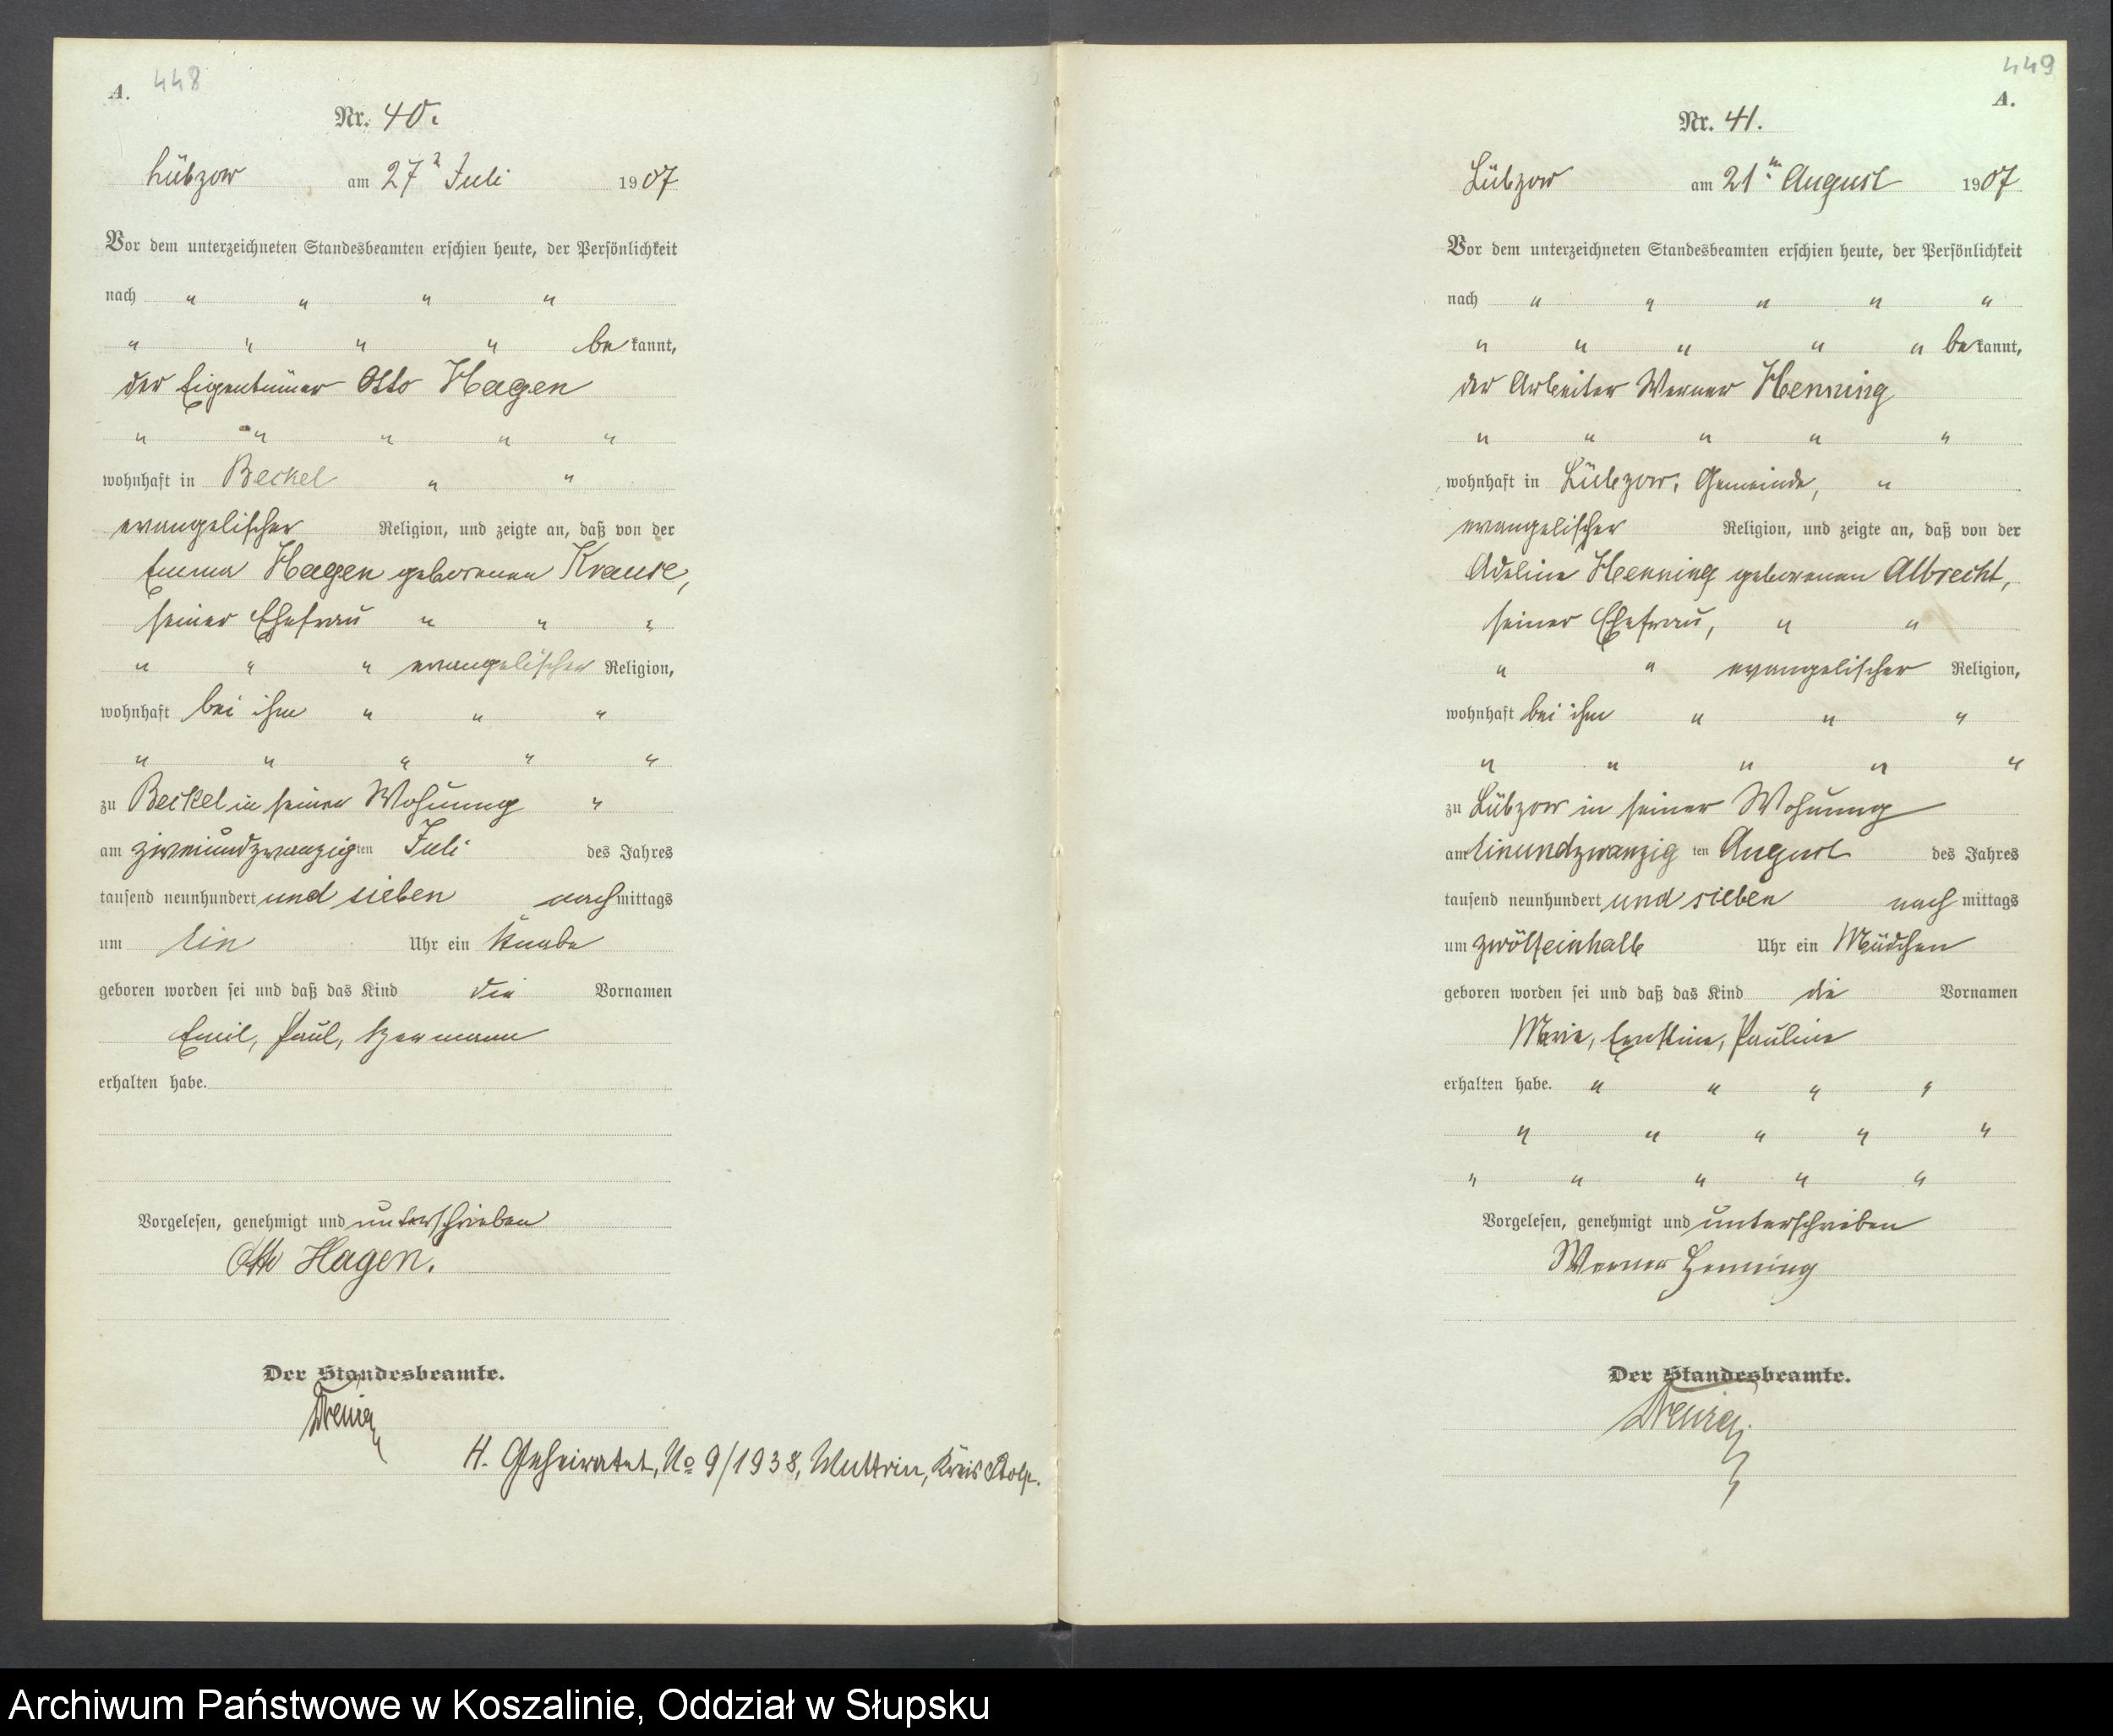 A. 448
Nr. 40.
Lübzow am 27 Juli 1907
Vor dem unterzeichneten Standesbeamten erschien heute, der Persönlichkeit
nach " " " "
" " " " bekannt,
der Eigentümer Otto Hagen
" " " " "
wohnhaft in Beckel " "
evangelischer Religion, und zeigte an, daß von der
Emma Hagen geborenen Krause,
seiner Ehefrau " " "
" " " evangelischer Religion,
wohnhaft bei ihm " " "
" " " " "
zu Beckel in seiner Wohnung "
am zweiundzwanzigten Juli des Jahres
tausend neunhundert und sieben nachmittags
um ein Uhr ein Knabe
geboren worden sei und daß das Kind die Vornamen
Emil, Paul, Hermann
erhalten habe.
Vorgelesen, genehmigt und unterschrieben
Otto Hagen.
Der Standesbeamte.
H. Geheiratet, No 9/1938, Wuttrin, Kreis Stolp.
449
A.
Nr. 41.
Lübzow am 21ten August 1907
Vor dem unterzeichneten Standesbeamten erschien heute, der Persönlichkeit
nach " " " " "
" " " " " bekannt,
der Arbeiter Werner Henning
" " " " "
wohnhaft in Lübzow, Gemeinde, "
evangelischer Religion, und zeigte an, daß von der
Adeline Henning geborenen Albrecht,
seiner Ehefrau, " "
" " evangelischer Religion,
wohnhaft bei ihm " " "
" " " " "
zu Lübzow in seiner Wohnung
am einundzwanzig ten August des Jahres
tausend neunhundert und sieben nachmittags
um zwölfeinhalb Uhr ein Mädchen
geboren worden sei und daß das Kind die Vornamen
Marie, Ernstine, Pauline
erhalten habe. " " " "
" " " " "
" " " " "
Vorgelesen, genehmigt und unterschrieben
Werner Henning
Der Standesbeamte.
Archiwum Państwowe w Koszalinie, Oddział w Słupsku